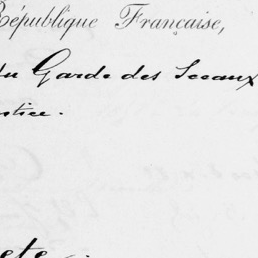 République Française,
du Garde des Sceaux
stice.
ete